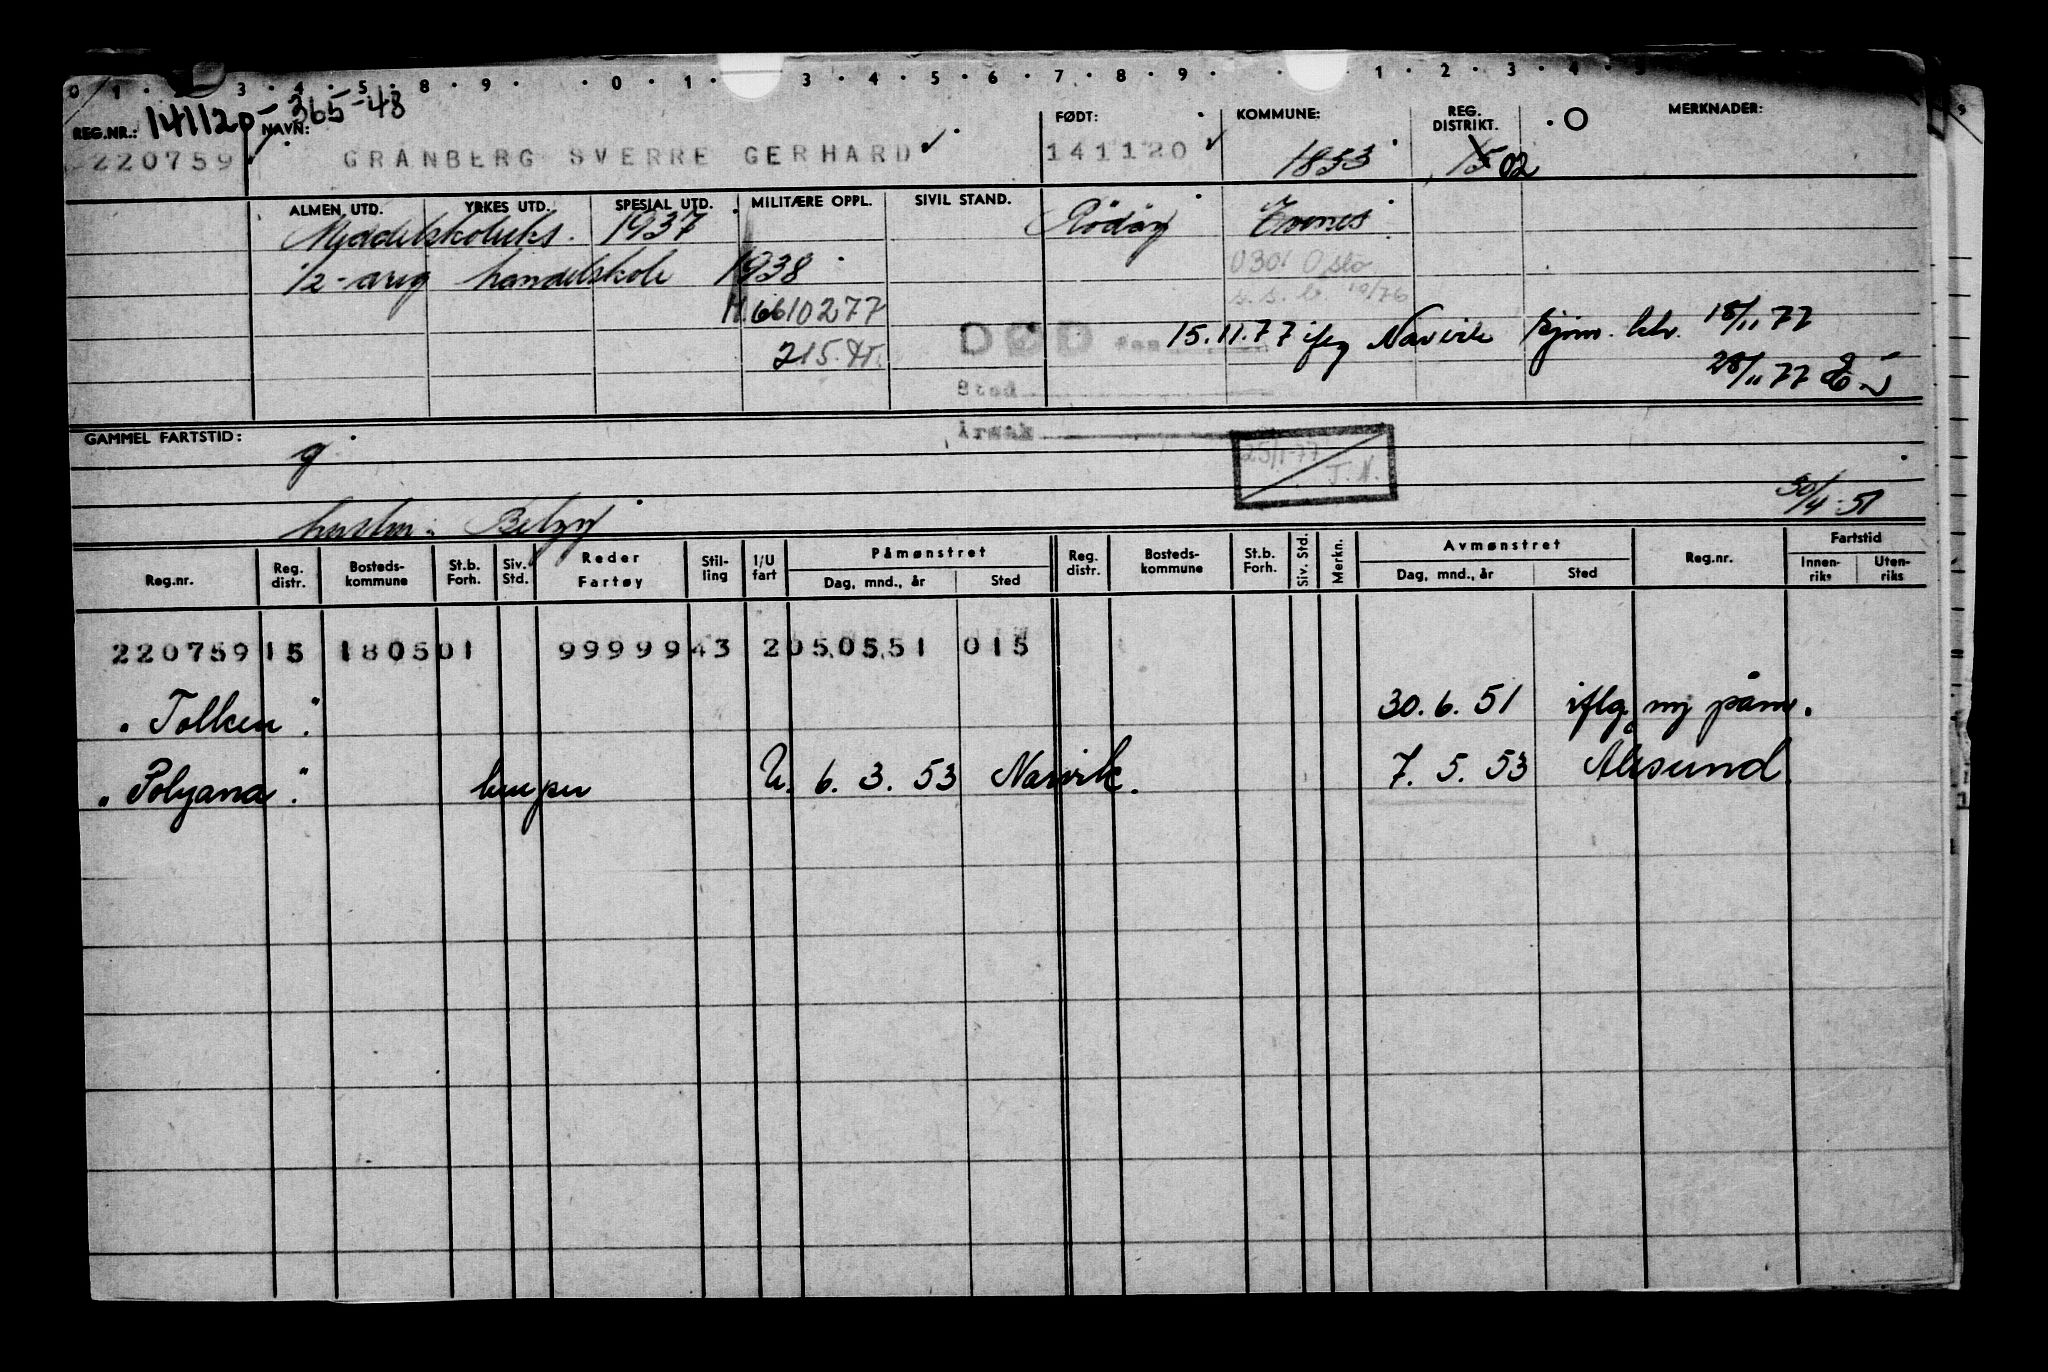 0 1 . 3 . 4 . 5 . 8 . 9 . 0 . 1 . 3 . 4 . 5 . 6 . 7 . 8 . 9 . 1 . 2 . 3 . 4 .
REG.NR.: 141120-365-48 NAVN: FØDT: KOMMUNE: REG. DISTRIKT. MERKNADER:
220759 GRANBERG SVERRE GERHARD 141120 1853 15 02
ALMEN UTD. YRKES UTD. SPESIAL UTD. MILITÆRE OPPL. SIVIL STAND.
Middelskoleeks. 1937 Evenes
1/2-årig handelskole 1938 0301 Oslo
H.6610277 s.s.b. 10/76
DØD den 15.11.77 iflg Narvik 18/11 77
215. Kr. 28/11 77
Sted
Årsak
GAMMEL FARTSTID:
g
25/1-77
J.N.
30/4-51
hustru: Betzy
Reg.nr. Reg. distr. Bosteds-kommune St.b. Forh. Siv. Std. Reder Fartøy Stil-ling I/U fart Påmønstret Dag, mnd., år Sted Reg. distr. Bosteds-kommune St.b. Forh. Siv. Std. Merkn. Avmønstret Dag, mnd., år Sted Reg.nr. Fartstid Innen-riks Uten-riks
220759 15 1805 01 99999 43 2 050551 015
"Tolken". 30.6.51 iflg. ny påm.
"Polyana". lemper U. 6.3.53 Narvik. 7.5.53 Ålesund.